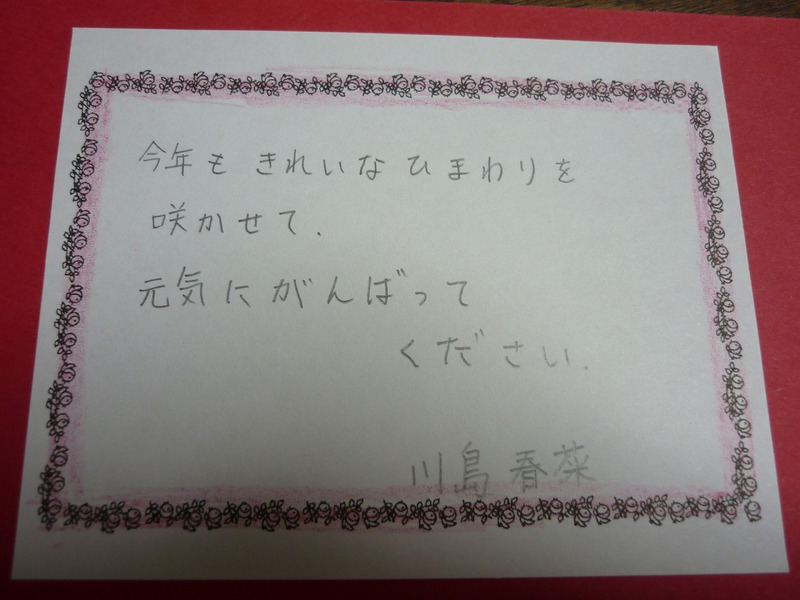 今年もきれいなひまわりを
咲かせて.
元気にがんばって
ください.
川島春菜